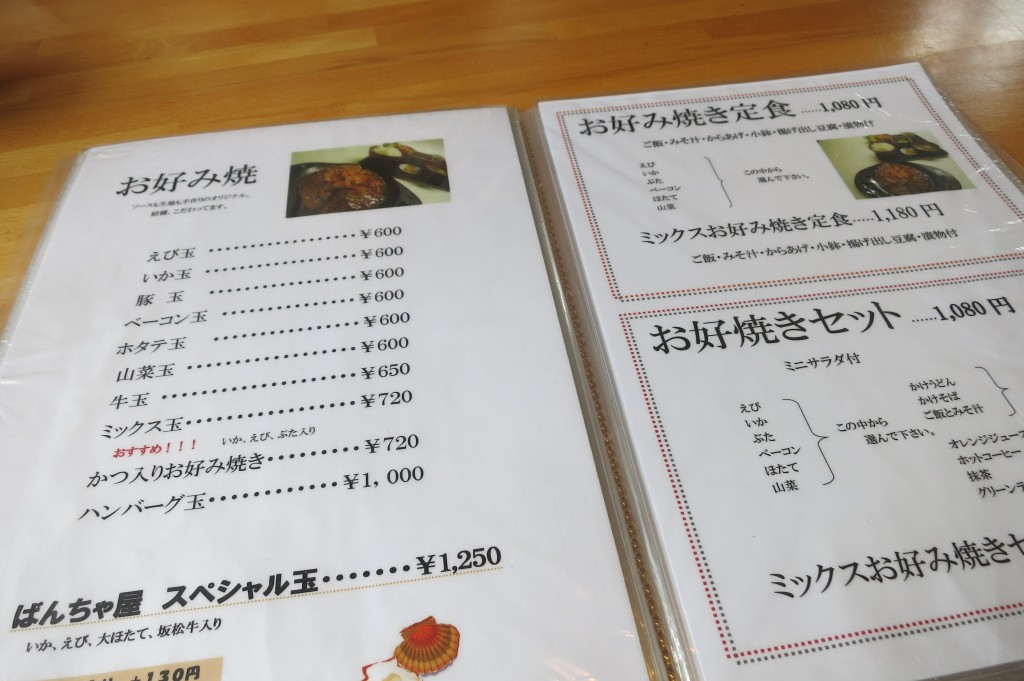 お好み焼
ソースも生地も手作りのオリジナル。
結構、こだわってます。
えび玉 ・・・・・・・・・・・・・・・・・・ ¥600
いか玉 ・・・・・・・・・・・・・・・・・・ ¥600
豚 玉 ・・・・・・・・・・・・・・・・・・ ¥600
ベーコン玉 ・・・・・・・・・・・・・・・・ ¥600
ホタテ玉 ・・・・・・・・・・・・・・・・ ¥600
山菜玉 ・・・・・・・・・・・・・・・・・・ ¥600
牛玉 ・・・・・・・・・・・・・・・・・・・・ ¥650
ミックス玉 ・・・・・・・・・・・・・・・・ ¥720
おすすめ！！！ いか、えび、ぶた入り
かつ入りお好み焼き・・・・・・・・・ ¥720
ハンバーグ玉・・・・・・・・・・・・ ¥1,000
ばんちゃ屋 スペシャル玉・・・・・・・ ¥1,250
いか、えび、大ほたて、坂松牛入り
+130円
お好み焼き定食 ......1,080円
ご飯・みそ汁・からあげ・小鉢・揚げ出し豆腐・漬物付
えび
いか
ぶた
ベーコン
ほたて
山菜
この中から
選んで下さい。
ミックスお好み焼き定食.....1,180円
ご飯・みそ汁・からあげ・小鉢・揚げ出し豆腐・漬物付
お好焼きセット ......1,080円
ミニサラダ付
えび
いか
ぶた
ベーコン
ほたて
山菜
この中から
選んで下さい。
かけうどん
かけそば
ご飯とみそ汁
オレンジジュー
ホットコーヒー
抹茶
グリーンテ
ミックスお好み焼きセ